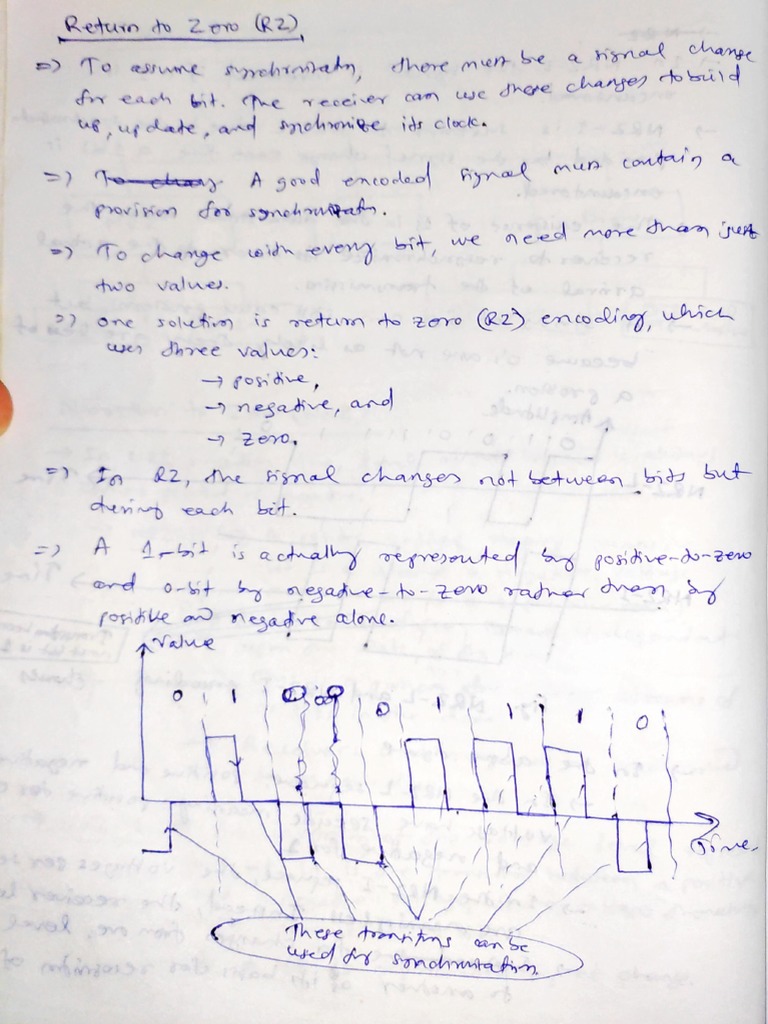 Return to Zero (RZ)
=> To assume synchronizatn, there must be a signal change
for each bit. The receiver can use these changes to build
up, update, and synchronize its clock.
=> A good encoded signal must contain a
provision for synchronizatn.
=> To change with every bit, we need more than just
two values.
=> one solution is return to zero (RZ) encoding, which
uses three values:
→ positive,
→ negative, and
→ zero.
=> In RZ, the signal changes not between bits but
during each bit.
=> A 1-bit is actually represented by positive-to-zero
and 0-bit by negative-to-zero rather than by
positive and negative alone.
Value
0 1 0 0 0 1 1 1 0
Time
These transitions can be
used for synchronization